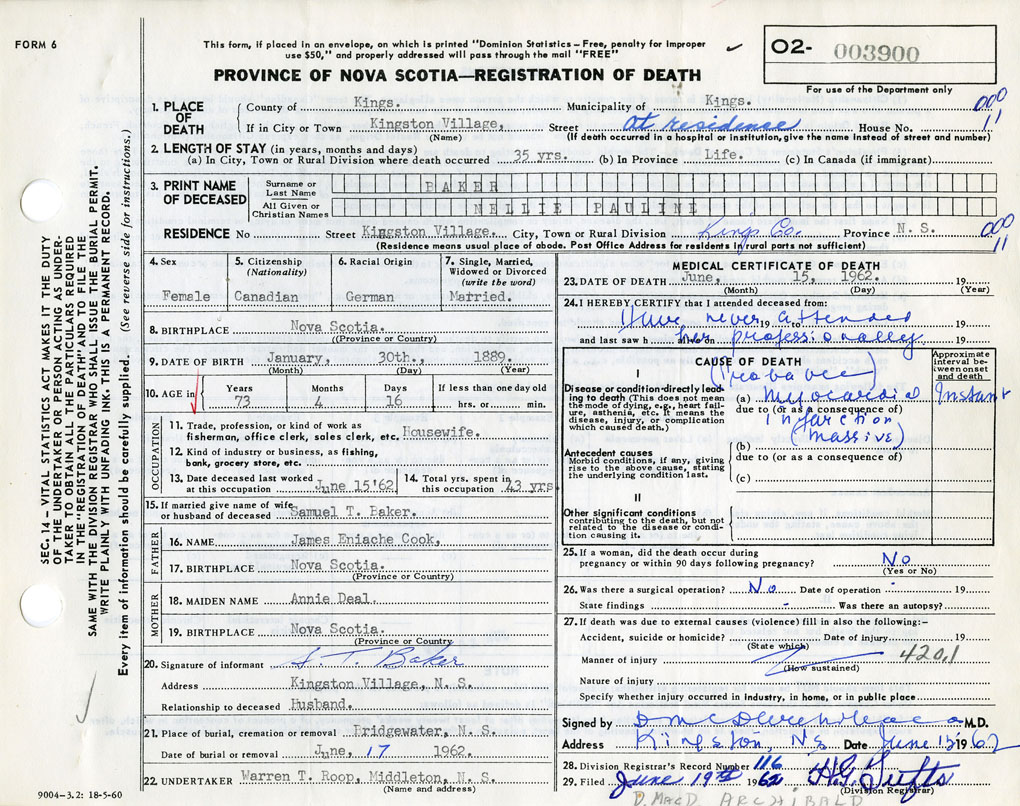 FORM 6
This form, if placed in an envelope, on which is printed "Dominion Statistics – Free, penalty for improper
use $50," and properly addressed will pass through the mail "FREE"
PROVINCE OF NOVA SCOTIA—REGISTRATION OF DEATH
02- 003900
For use of the Department only
SEC. 14 – VITAL STATISTICS ACT MAKES IT THE DUTY
OF THE UNDERTAKER OR PERSON ACTING AS UNDER-
TAKER TO OBTAIN ALL THE PARTICULARS REQUIRED
IN THE "REGISTRATION OF DEATH" AND TO FILE THE
SAME WITH THE DIVISION REGISTRAR WHO SHALL ISSUE THE BURIAL PERMIT.
WRITE PLAINLY WITH UNFADING INK. THIS IS A PERMANENT RECORD.
Every item of information should be carefully supplied. (See reverse side for instructions.)
1. PLACE OF DEATH
County of Kings. Municipality of Kings. 000
If in City or Town Kingston Village, Street At residence House No. 11
(Name) (If death occurred in a hospital or institution, give the name instead of street and number)
2. LENGTH OF STAY (in years, months and days)
(a) In City, Town or Rural Division where death occurred 35 yrs. (b) In Province Life. (c) In Canada (if immigrant)
3. PRINT NAME OF DECEASED
Surname or Last Name BAKER
All Given or Christian Names NELLIE PAULINE
RESIDENCE No Street Kingston Village. City, Town or Rural Division Kings Co. Province N. S. 000 11
(Residence means usual place of abode. Post Office Address for residents in rural parts not sufficient)
4. Sex Female
5. Citizenship (Nationality) Canadian
6. Racial Origin German
7. Single, Married, Widowed or Divorced (write the word) Married.
8. BIRTHPLACE Nova Scotia.
(Province or Country)
9. DATE OF BIRTH January, 30th., 1889.
(Month) (Day) (Year)
10. AGE in Years 73 Months 4 Days 16 If less than one day old hrs. or min.
OCCUPATION
11. Trade, profession, or kind of work as fisherman, office clerk, sales clerk, etc. Housewife.
12. Kind of industry or business, as fishing, bank, grocery store, etc.
13. Date deceased last worked at this occupation June 15'62
14. Total yrs. spent in this occupation 43 yrs
15. If married give name of wife or husband of deceased Samuel T. Baker.
FATHER
16. NAME James Eniache Cook,
17. BIRTHPLACE Nova Scotia.
(Province or Country)
MOTHER
18. MAIDEN NAME Annie Deal.
19. BIRTHPLACE Nova Scotia.
(Province or Country
20. Signature of informant S. T. Baker
Address Kingston Village, N. S.
Relationship to deceased Husband.
21. Place of burial, cremation or removal Bridgewater, N. S.
Date of burial or removal June, 17 1962.
22. UNDERTAKER Warren T. Roop, Middleton, N. S.
(Name and address)
9004-3.2: 18-5-60
MEDICAL CERTIFICATE OF DEATH
23. DATE OF DEATH June, 15, 1962.
(Month) (Day) (Year)
24. I HEREBY CERTIFY that I attended deceased from:
Have never attended 19 to 19
and last saw h her professionally. 19
CAUSE OF DEATH
Approximate interval between onset and death
I
Disease or condition directly leading to death (This does not mean the mode of dying, e.g., heart failure, asthenia, etc. It means the disease, injury, or complication which caused death.)
(a) myocardial Instant
due to (or as a consequence of)
infarction
(massive)
(b)
Antecedent causes
Morbid conditions, if any, giving rise to the above cause, stating the underlying condition last.
due to (or as a consequence of)
(c)
II
Other significant conditions
contributing to the death, but not related to the disease or condition causing it.
25. If a woman, did the death occur during pregnancy or within 90 days following pregnancy? No
(Yes or No)
26. Was there a surgical operation? No Date of operation - 19
State findings - Was there an autopsy?
27. If death was due to external causes (violence) fill in also the following:-
Accident, suicide or homicide? Date of injury 19
(State which)
Manner of injury 420.1
(How sustained)
Nature of injury
Specify whether injury occurred in industry, in home, or in public place
Signed by M.D.
Address Kingston, NS Date June 15 1962
28. Division Registrar's Record Number 116
29. Filed June 19th 1962 H G Tufts
(Division Registrar)
D. MacD ARCHIBALD